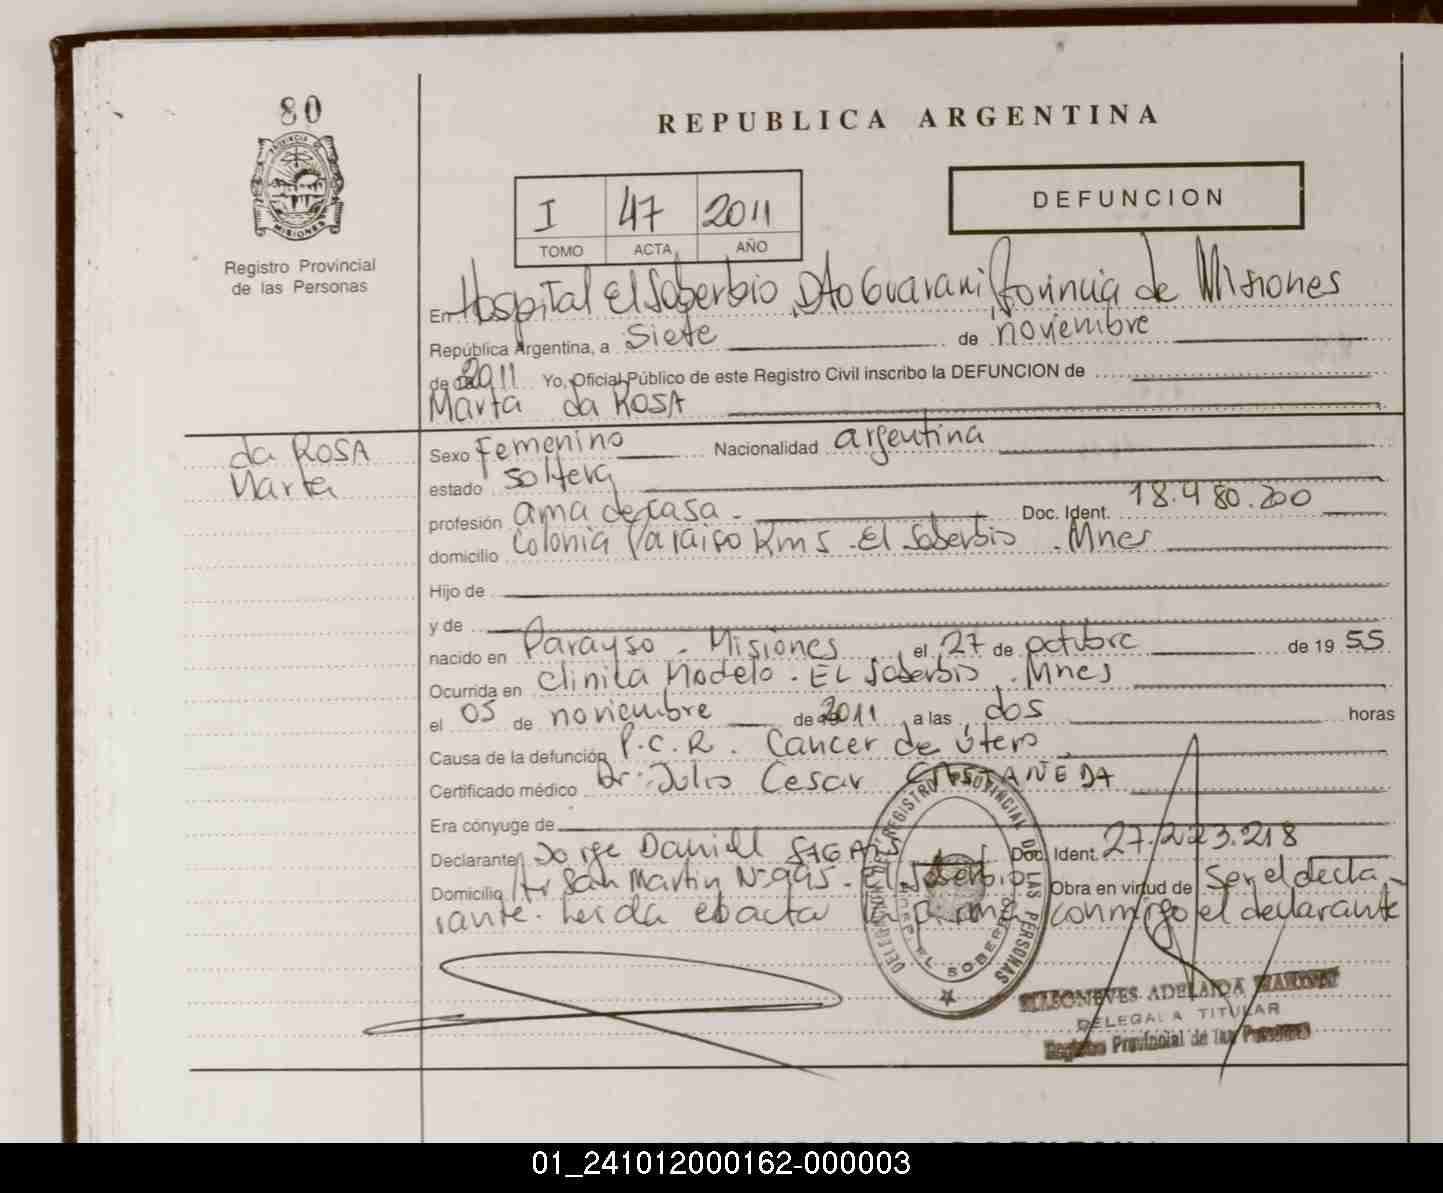 80
PROVINCIA DE
MISIONES
Registro Provincial
de las Personas
REPUBLICA ARGENTINA
DEFUNCION
I 47 2011
TOMO ACTA AÑO
En Hospital El Soberbio, Dto Guarani Provincia de Misiones
República Argentina, a Siete de noviembre
de 2011 Yo, Oficial Público de este Registro Civil inscribo la DEFUNCION de
Marta da ROSA
da ROSA
Marta
Sexo Femenino Nacionalidad argentina
estado soltera
profesión ama de casa - Doc. Ident. 18.480.200
domicilio Colonia Paraiso Km 5 - El Soberbio - Mnes
Hijo de
y de
nacido en Parayso - Misiones el 27 de octubre de 19 55
Ocurrida en Clinica Modelo - EL Soberbio - Mnes
el 05 de noviembre de 2011 a las dos horas
Causa de la defunción P.C.R. Cancer de útero
Certificado médico Dr. Julio Cesar CASTAÑEDA
Era cónyuge de
Declarante Jorge Daniel Doc. Ident. 27.223.218
Domicilio San Martin Nº 995 - El Soberbio Obra en virtud de Ser el decla-
rante. Leida el acta la firma conmigo el declarante
REGISTRO PROVINCIAL DE LAS PERSONAS
EL SOBERBIO
ADELAIDA
DELEGADA TITULAR
Registro Provincial de las Personas
01_241012000162-000003